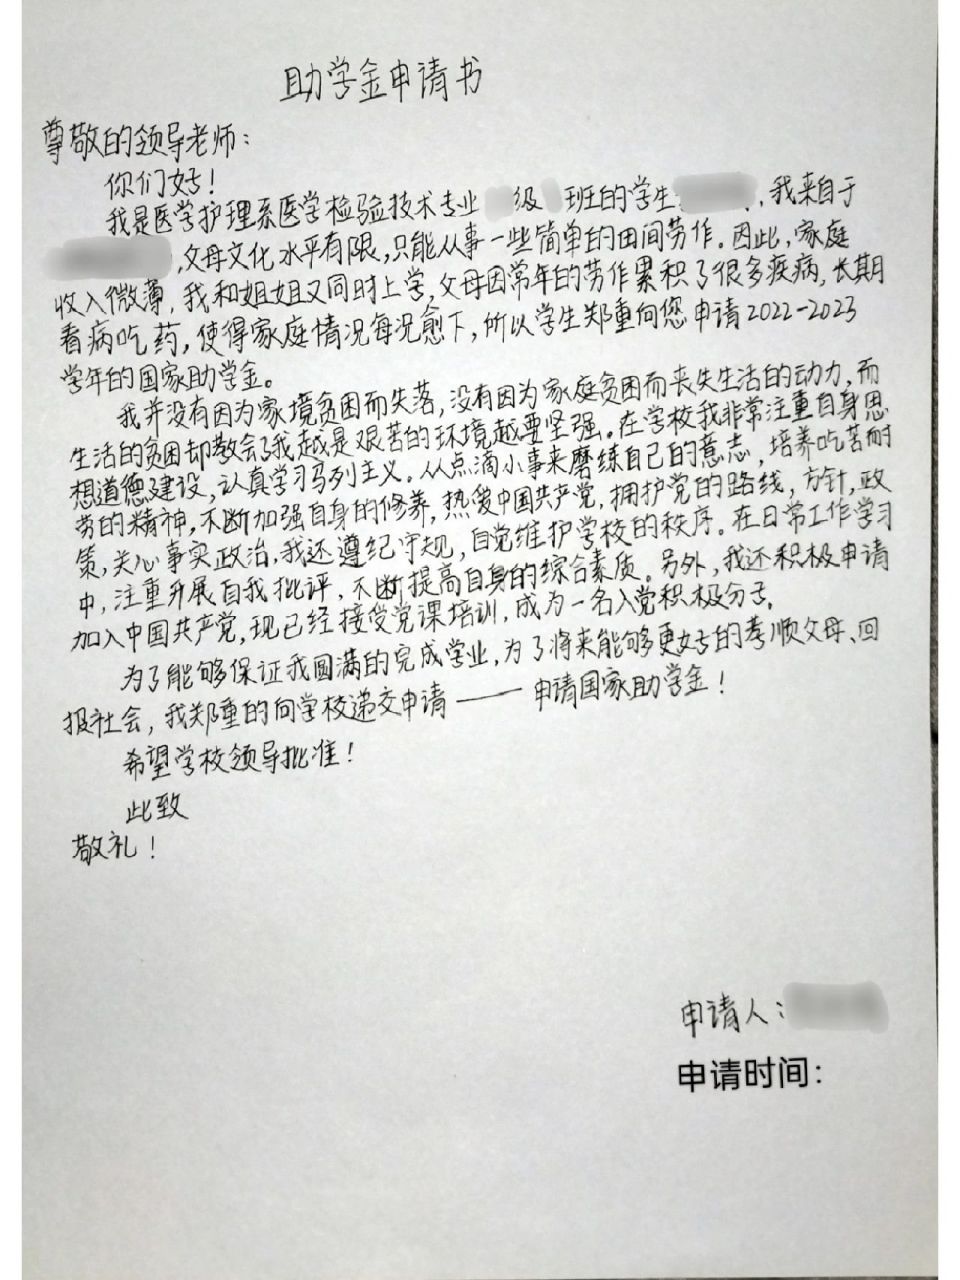 助学金申请书
尊敬的领导老师：
你们好！
我是医学护理系医学检验技术专业 级 班的学生 ，我来自于
，父母文化水平有限，只能从事一些简单的田间劳作。因此，家庭
收入微薄，我和姐姐又同时上学，父母因常年的劳作累积了很多疾病，长期
看病吃药，使得家庭情况每况愈下，所以学生郑重向您申请2022-2023
学年的国家助学金。
我并没有因为家境贫困而失落，没有因为家庭贫困而丧失生活的动力，而
生活的贫困却教会了我越是艰苦的环境越要坚强。在学校我非常注重自身思
想道德建设，认真学习马列主义。从点滴小事来磨练自己的意志，培养吃苦耐
劳的精神，不断加强自身的修养，热爱中国共产党，拥护党的路线，方针，政
策，关心事实政治，我还遵纪守规，自觉维护学校的秩序。在日常工作学习
中，注重开展自我批评，不断提高自身的综合素质。另外，我还积极申请
加入中国共产党，现已经接受党课培训，成为一名入党积极分子。
为了能够保证我圆满的完成学业，为了将来能够更好的孝顺父母、回
报社会，我郑重的向学校递交申请——申请国家助学金！
希望学校领导批准！
此致
敬礼！
申请人：
申请时间：